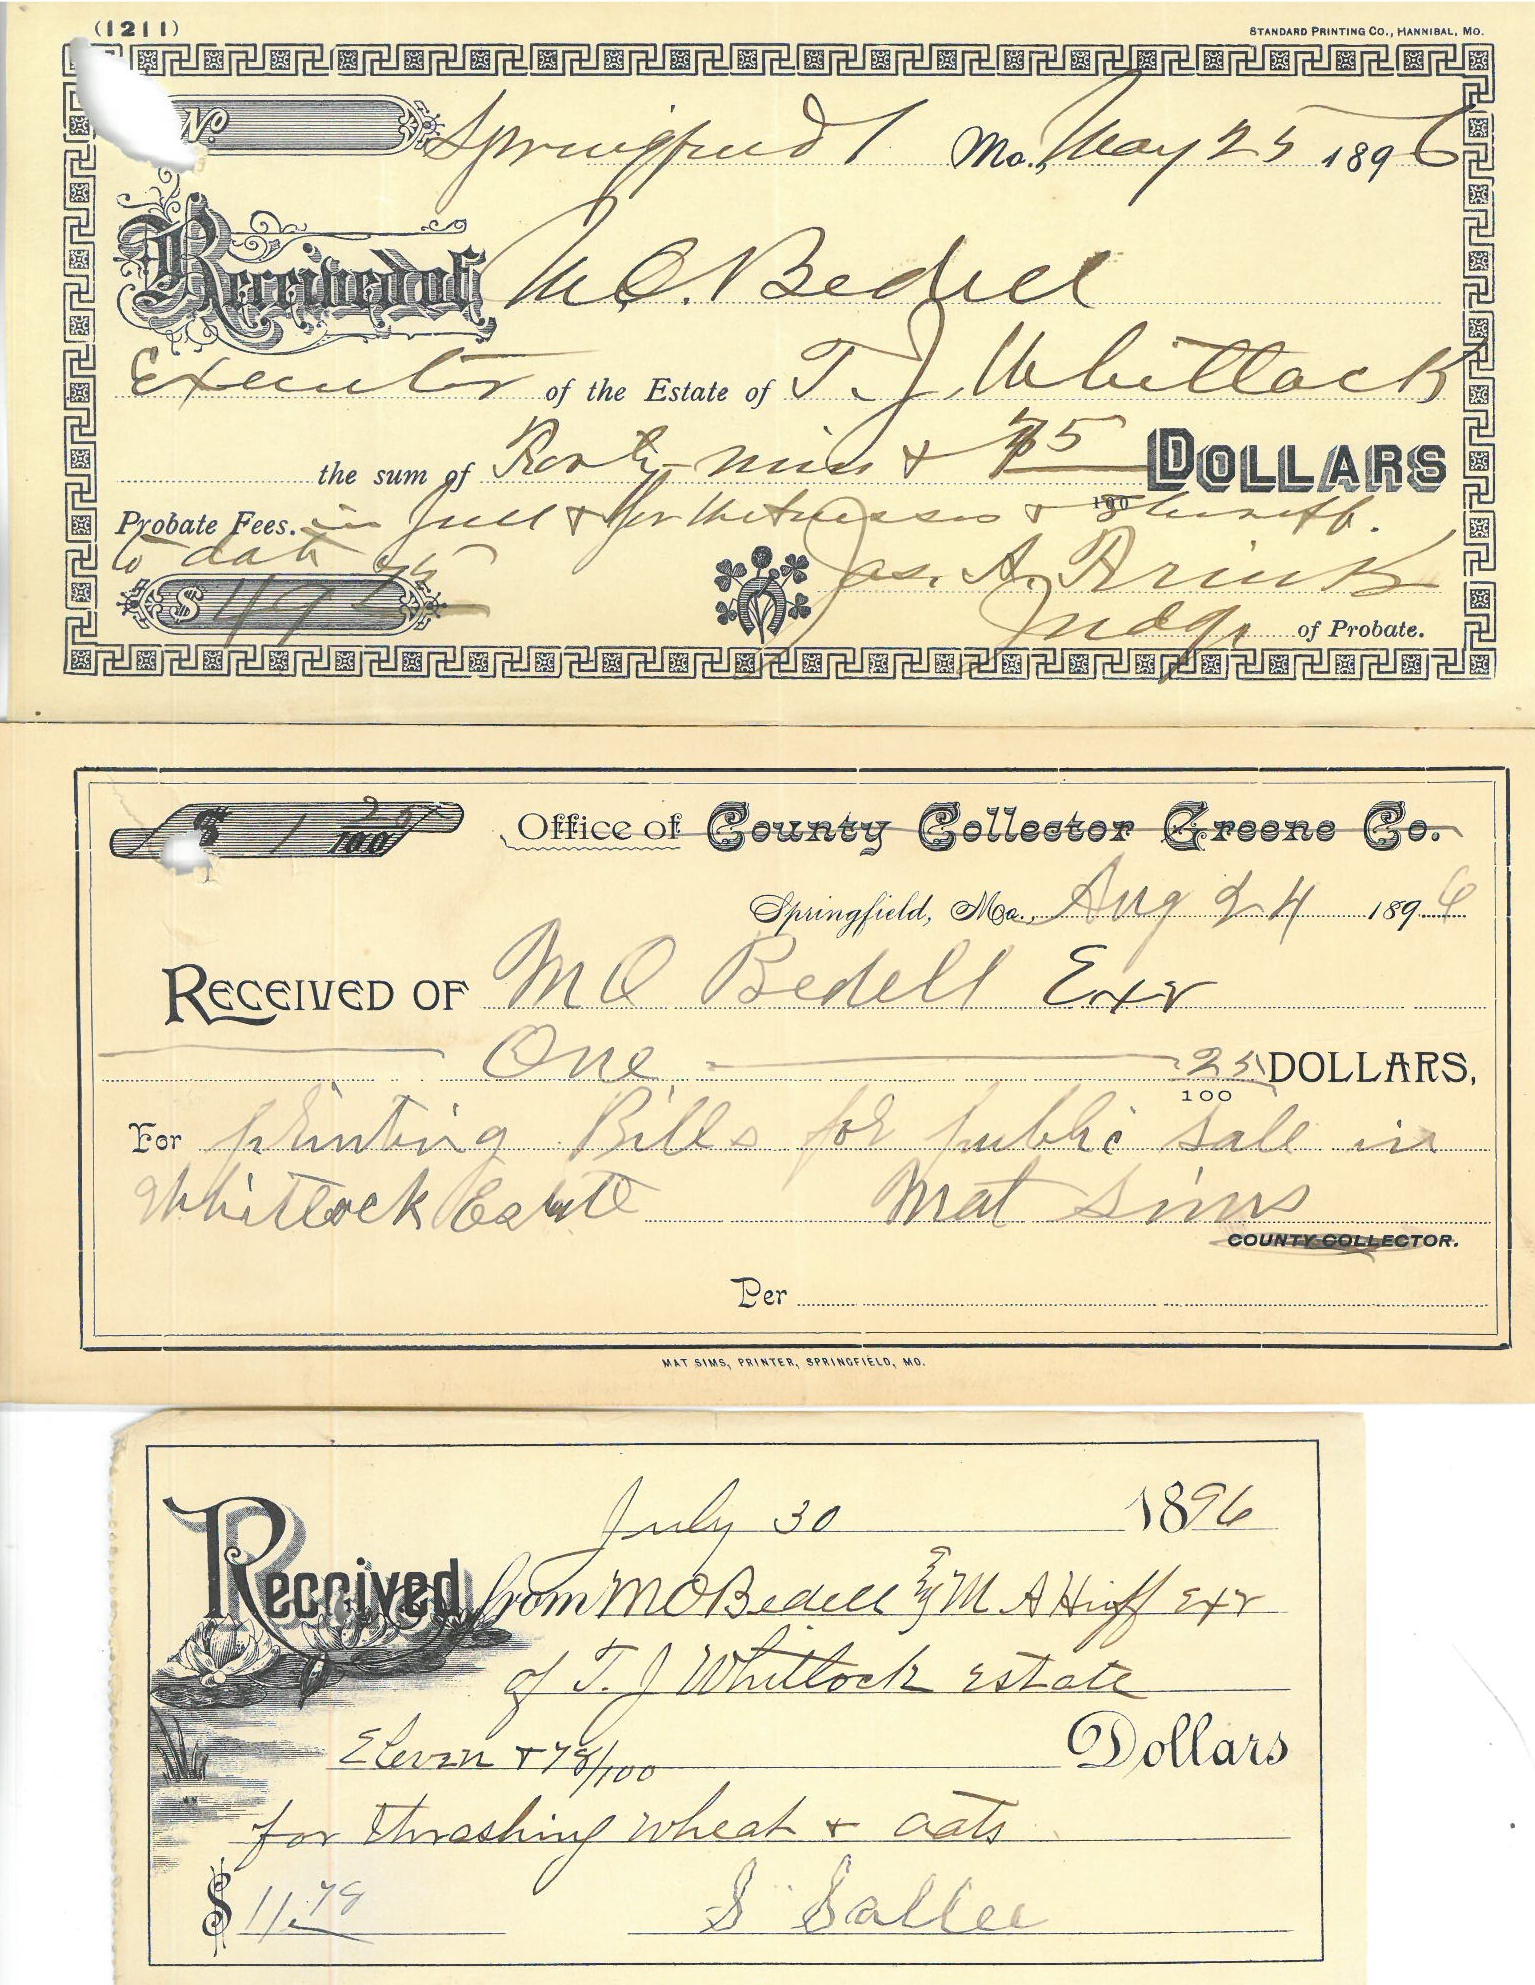 (1211)
STANDARD PRINTING CO., HANNIBAL, MO.
No
Springfield Mo., May 25 1896
Received of M.O. Bedell
Executor of the Estate of T. J. Whittlock
the sum of Forty-nine & 55/100 DOLLARS
Probate Fees. in full & for Witnesses & Sheriff.
to date
$ 49 55
Jas. A. Frink
Judge of Probate.
$ 1 25/100
Office of County Collector Greene Co.
Springfield, Mo., Aug 24 1896
RECEIVED OF M O Bedell Exr
One 25/100 DOLLARS,
For printing Bills for public sale in
Whitlock Estate Mat Sims
COUNTY COLLECTOR.
Per
MAT SIMS, PRINTER, SPRINGFIELD, MO.
July 30 1896
Received from M O Bedell By M A Huff Exr
of T. J Whitlock Estate
Eleven & 78/100 Dollars
for thrashing wheat & oats
$ 11.78 S Sallee